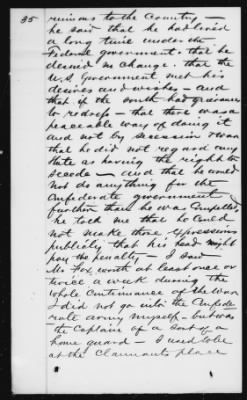 35
ruinous to the Country —
he said that he had lived
a long time under the
Federal government. that he
desired no change. that the
U.S. Government met his
desires and wishes — and
that if the south had grievances
to redress — that there was a
peaceable way of doing it
and not by secession &
that he did not regard any
state as having the right to
secede — and that he would
not do anything for the
Confederate government
further than he was Compelled
he told me that he could
not make these expressions
publicly that his head might
pay the penalty — I saw
Mr Fox worth at least once or
twice a week during the
whole Continuance of the War
I did not go into the Confede-
rate army myself. but was
the Captain of a sort of a
home guard — I used to be
at the Claimants place